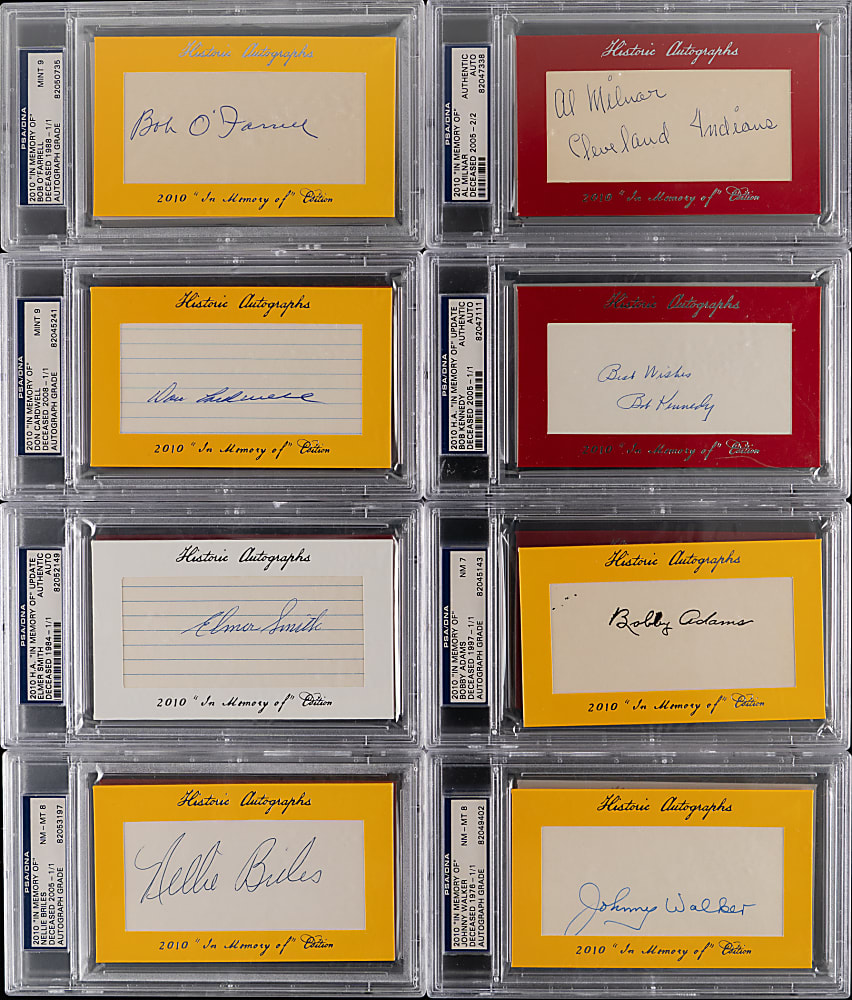 PSA/DNA
2010 "IN MEMORY OF"
BOB O'FARRELL
DECEASED 1988 - 1/1
AUTOGRAPH GRADE
MINT 9
82050735
Historic Autographs
Bob O'Farrell
2010 "In Memory of" Edition
PSA/DNA
2010 "IN MEMORY OF"
AL MILNAR
DECEASED 2005 - 2/2
AUTHENTIC
AUTO
82047338
Historic Autographs
Al Milnar
Cleveland Indians
2010 "In Memory of" Edition
PSA/DNA
2010 "IN MEMORY OF"
DON CARDWELL
DECEASED 2008 - 1/1
AUTOGRAPH GRADE
MINT 9
82045241
Historic Autographs
Don Cardwell
2010 "In Memory of" Edition
PSA/DNA
2010 H.A. "IN MEMORY OF" UPDATE
BOB KENNEDY
DECEASED 2005 - 1/1
AUTHENTIC
AUTO
82047111
Historic Autographs
Best Wishes
Bob Kennedy
2010 "In Memory of" Edition
PSA/DNA
2010 H.A. "IN MEMORY OF" UPDATE
ELMER SMITH
DECEASED 1984 - 1/1
AUTHENTIC
AUTO
82052149
Historic Autographs
Elmer Smith
2010 "In Memory of" Edition
PSA/DNA
2010 "IN MEMORY OF"
BOBBY ADAMS
DECEASED 1997 - 1/1
AUTOGRAPH GRADE
NM 7
82045143
Historic Autographs
Bobby Adams
2010 "In Memory of" Edition
PSA/DNA
2010 "IN MEMORY OF"
NELLIE BRILES
DECEASED 2005 - 1/1
AUTOGRAPH GRADE
NM - MT 8
82053197
Historic Autographs
Nellie Briles
2010 "In Memory of" Edition
PSA/DNA
2010 "IN MEMORY OF"
JOHNNY WALKER
DECEASED 1976 - 1/1
AUTOGRAPH GRADE
NM - MT 8
82049402
Historic Autographs
Johnny Walker
2010 "In Memory of" Edition